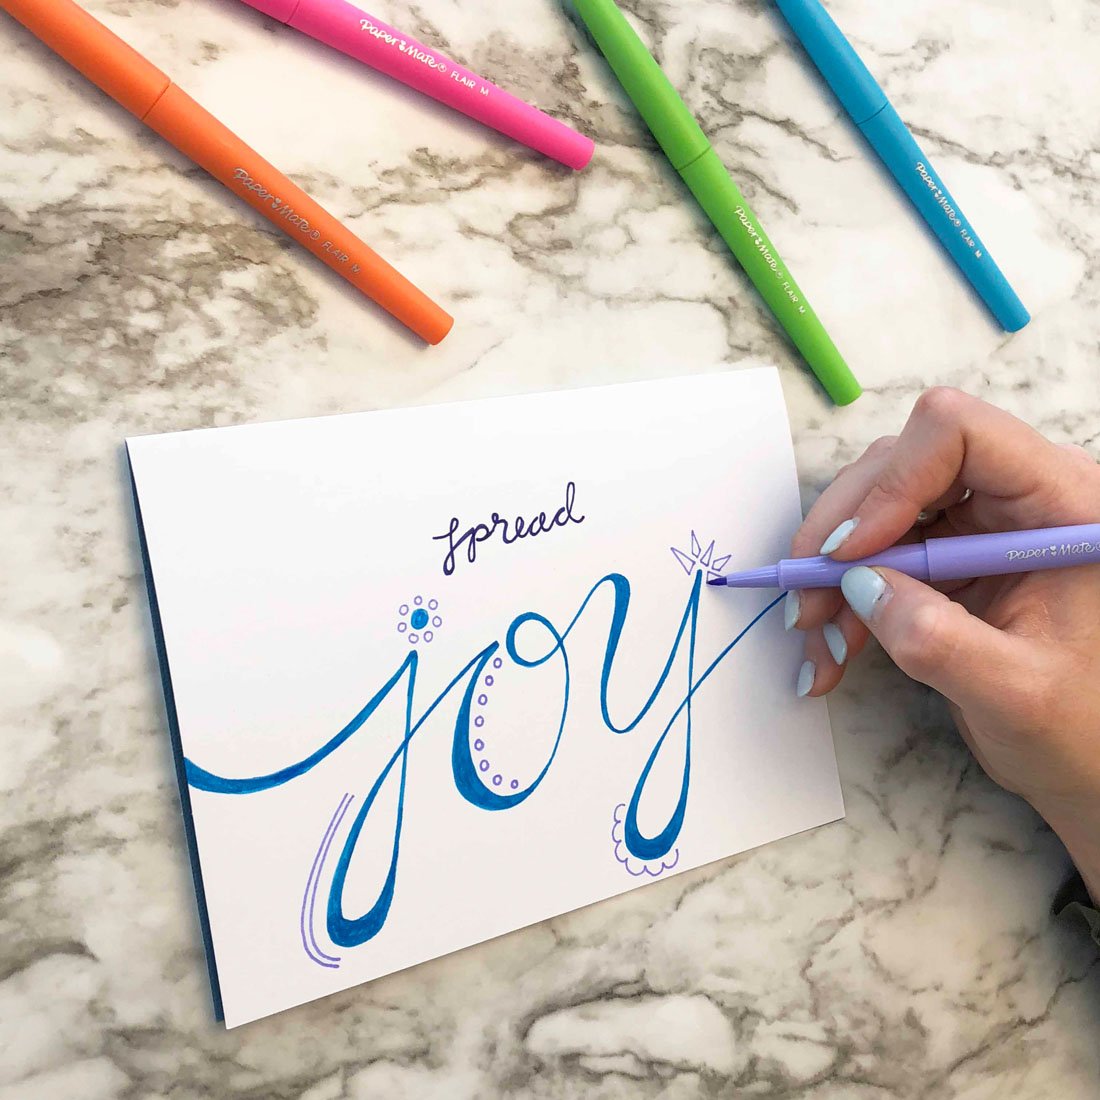 Paper Mate® FLAIR M
Paper Mate® FLAIR M
Paper Mate® FLAIR M
Paper Mate® FLAIR M
spread
joy
Paper Mate®